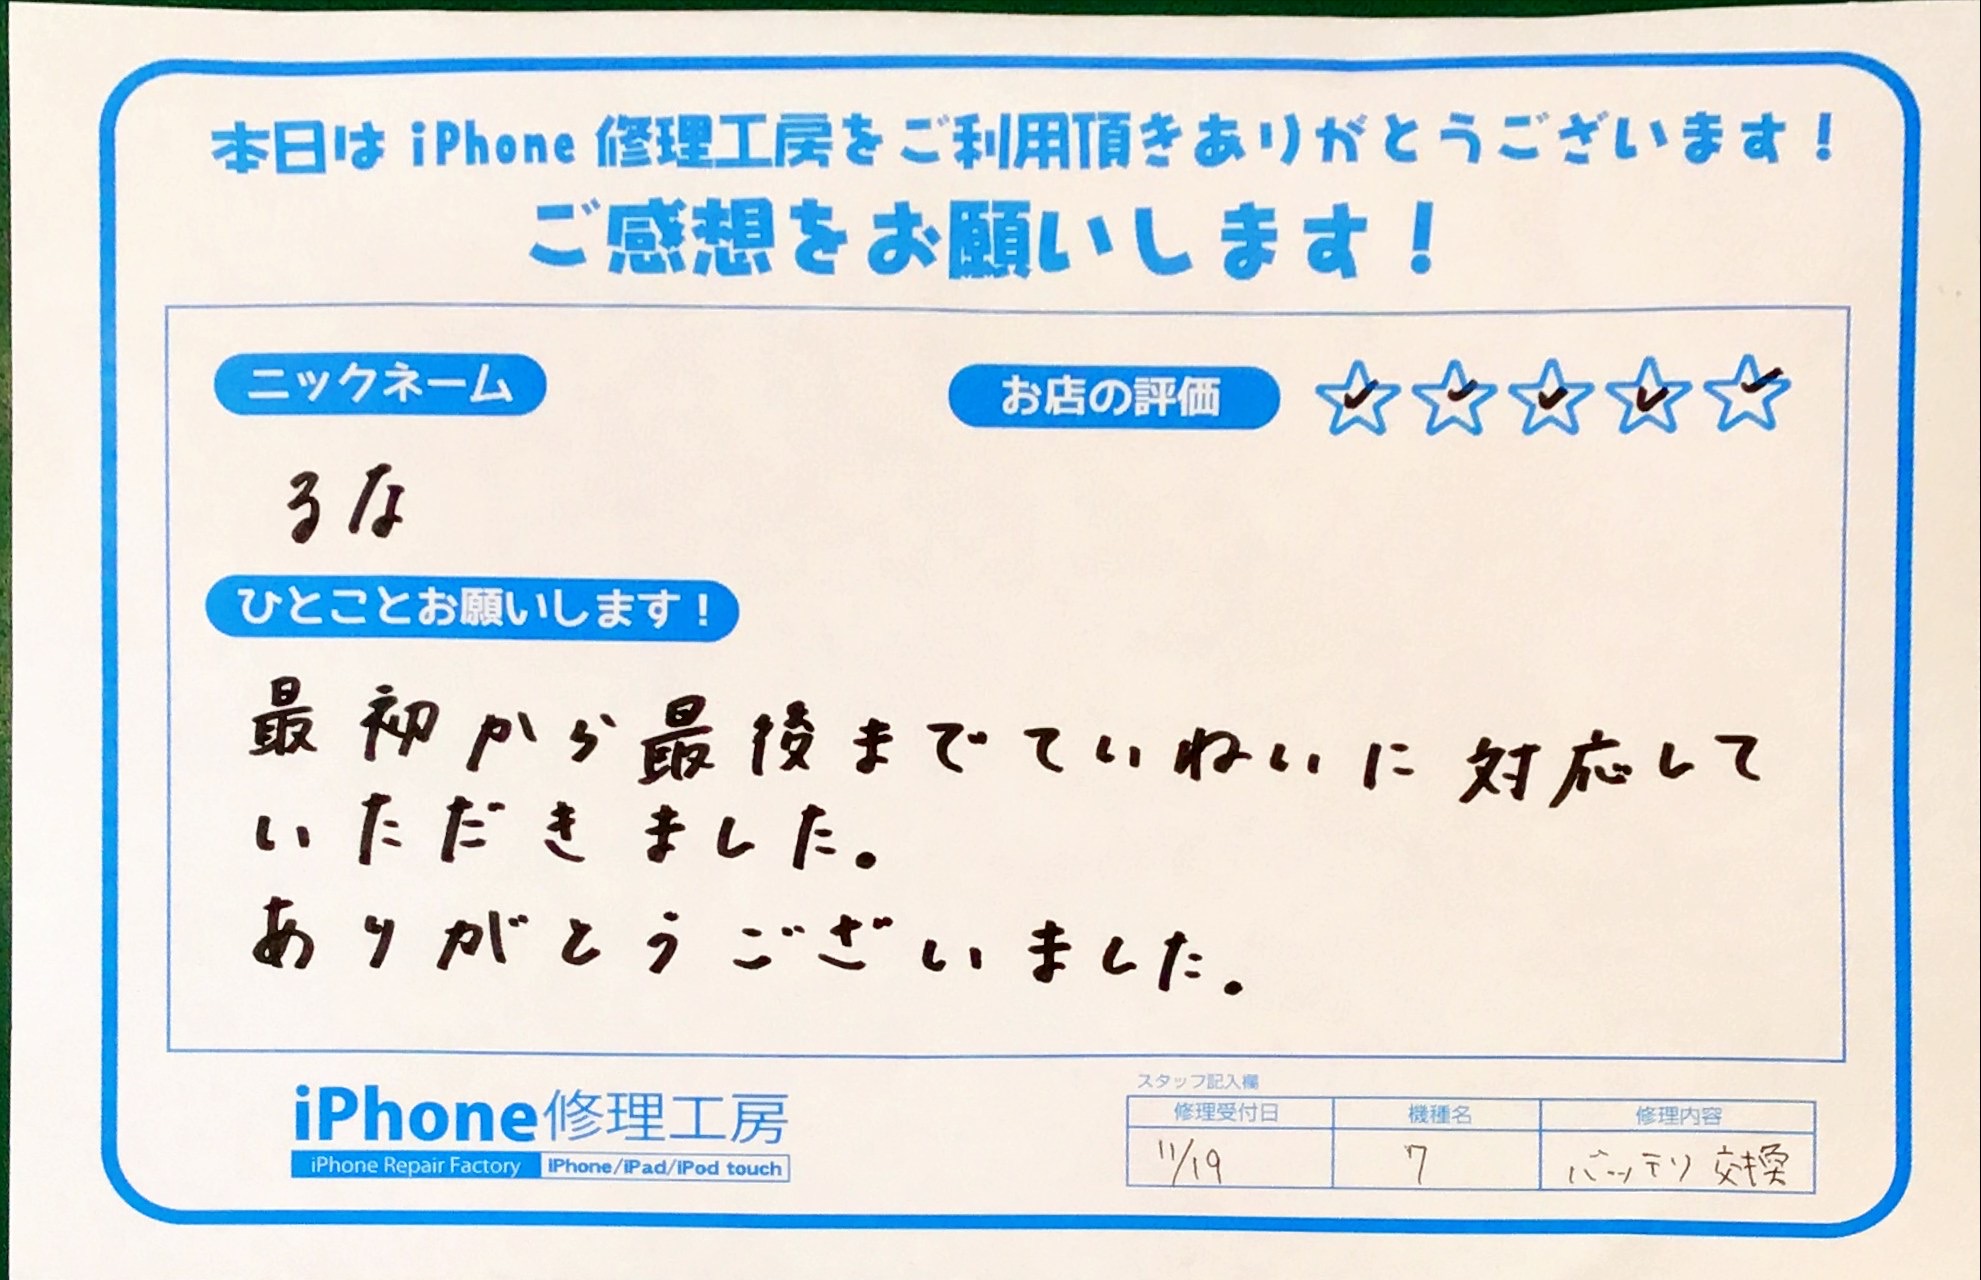 本日は iPhone 修理工房をご利用頂きありがとうございます！
ご感想をお願いします！
ニックネーム
お店の評価
るな
ひとことお願いします！
最初から最後までていねいに対応して
いただきました。
ありがとうございました。
iPhone修理工房
iPhone Repair Factory
iPhone/iPad/iPod touch
スタッフ記入欄
修理受付日 機種名 修理内容
11/19 7 バッテリ交換